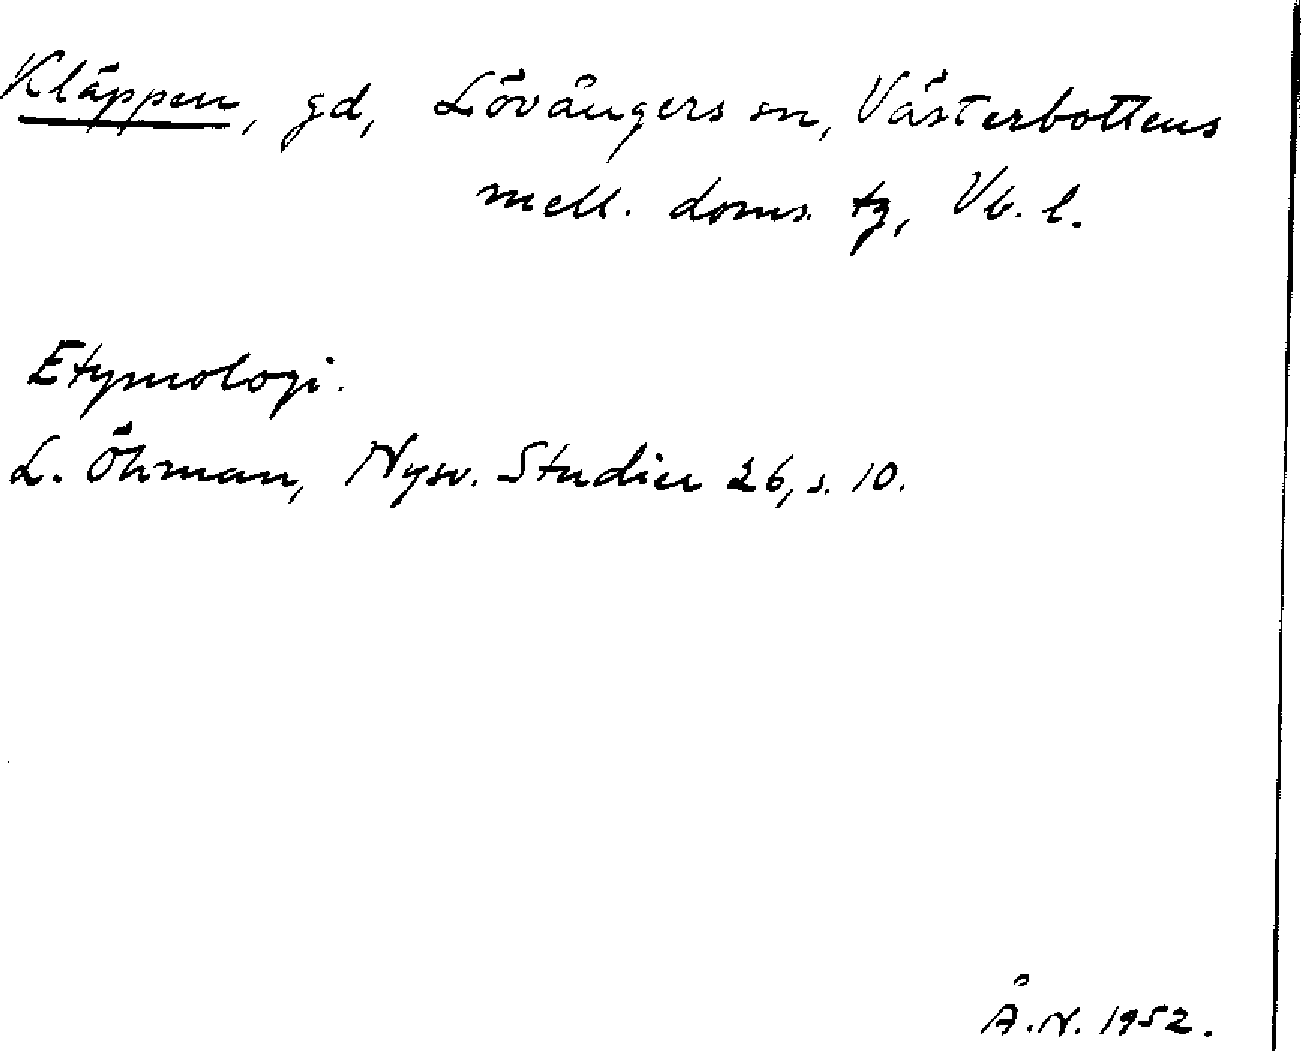 Kläppen, gd, Lövångers sn, Västerbottens
mell. doms. tg, Vb. l.
Etymologi.
L. Öhman, Nysv. Studier 26, s. 10.
Å.N. 1952.